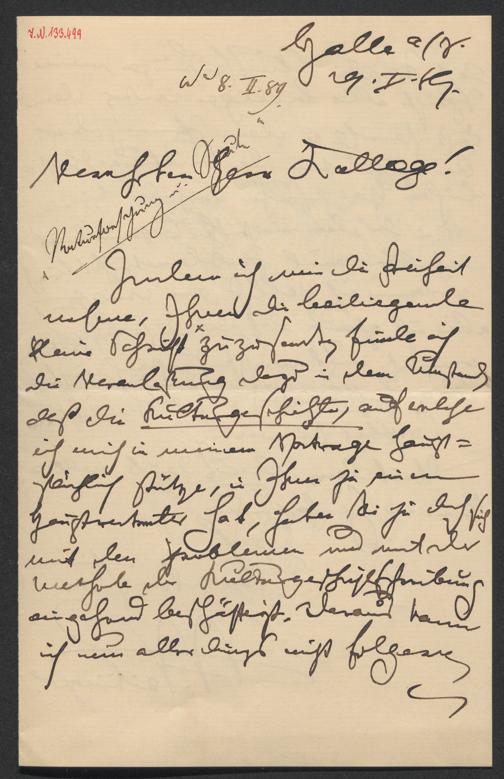 I.N. 133.499
Halle a/S.
29. I. 89.
8. II. 89
Verehrter Herr Kollege!
Naturforschung
Indem ich mir die Freiheit
nehme, Ihnen die beiliegende
kleine Schrift zuzusenden, finde ich
die Veranlassung dazu in dem Umstand
daß die Kulturgeschichte, auf welche
ich mich in meinem Vortrage haupt=
sächlich stütze, in Ihnen ja einen
Hauptvertreter hat, haben Sie ja doch sich
mit den Problemen und mit der
Methode der Kulturgeschichtschreibung
eingehend beschäftigt. Daraus kann
ich nun allerdings nicht folgern,